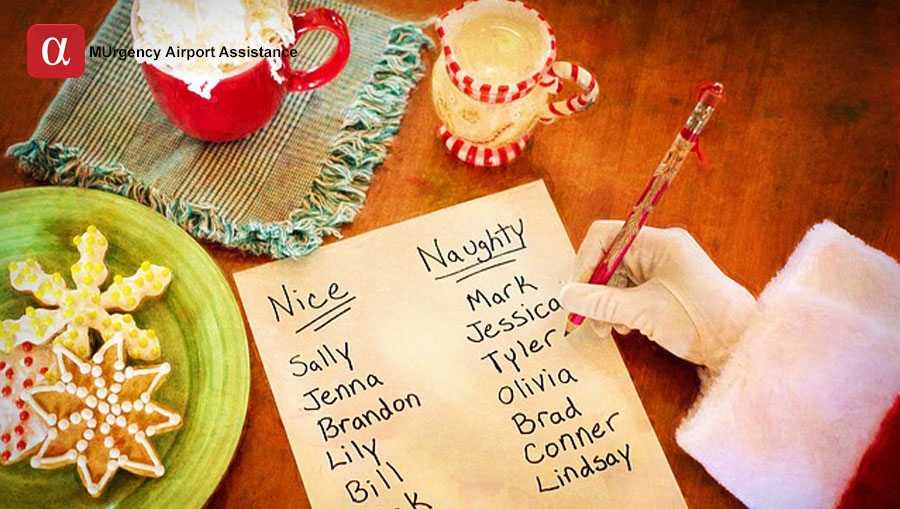 α
MUrgency Airport Assistance
Nice
Sally
Jenna
Brandon
Lily
Bill
Naughty
Mark
Jessica
Tyler
Olivia
Brad
Conner
Lindsay